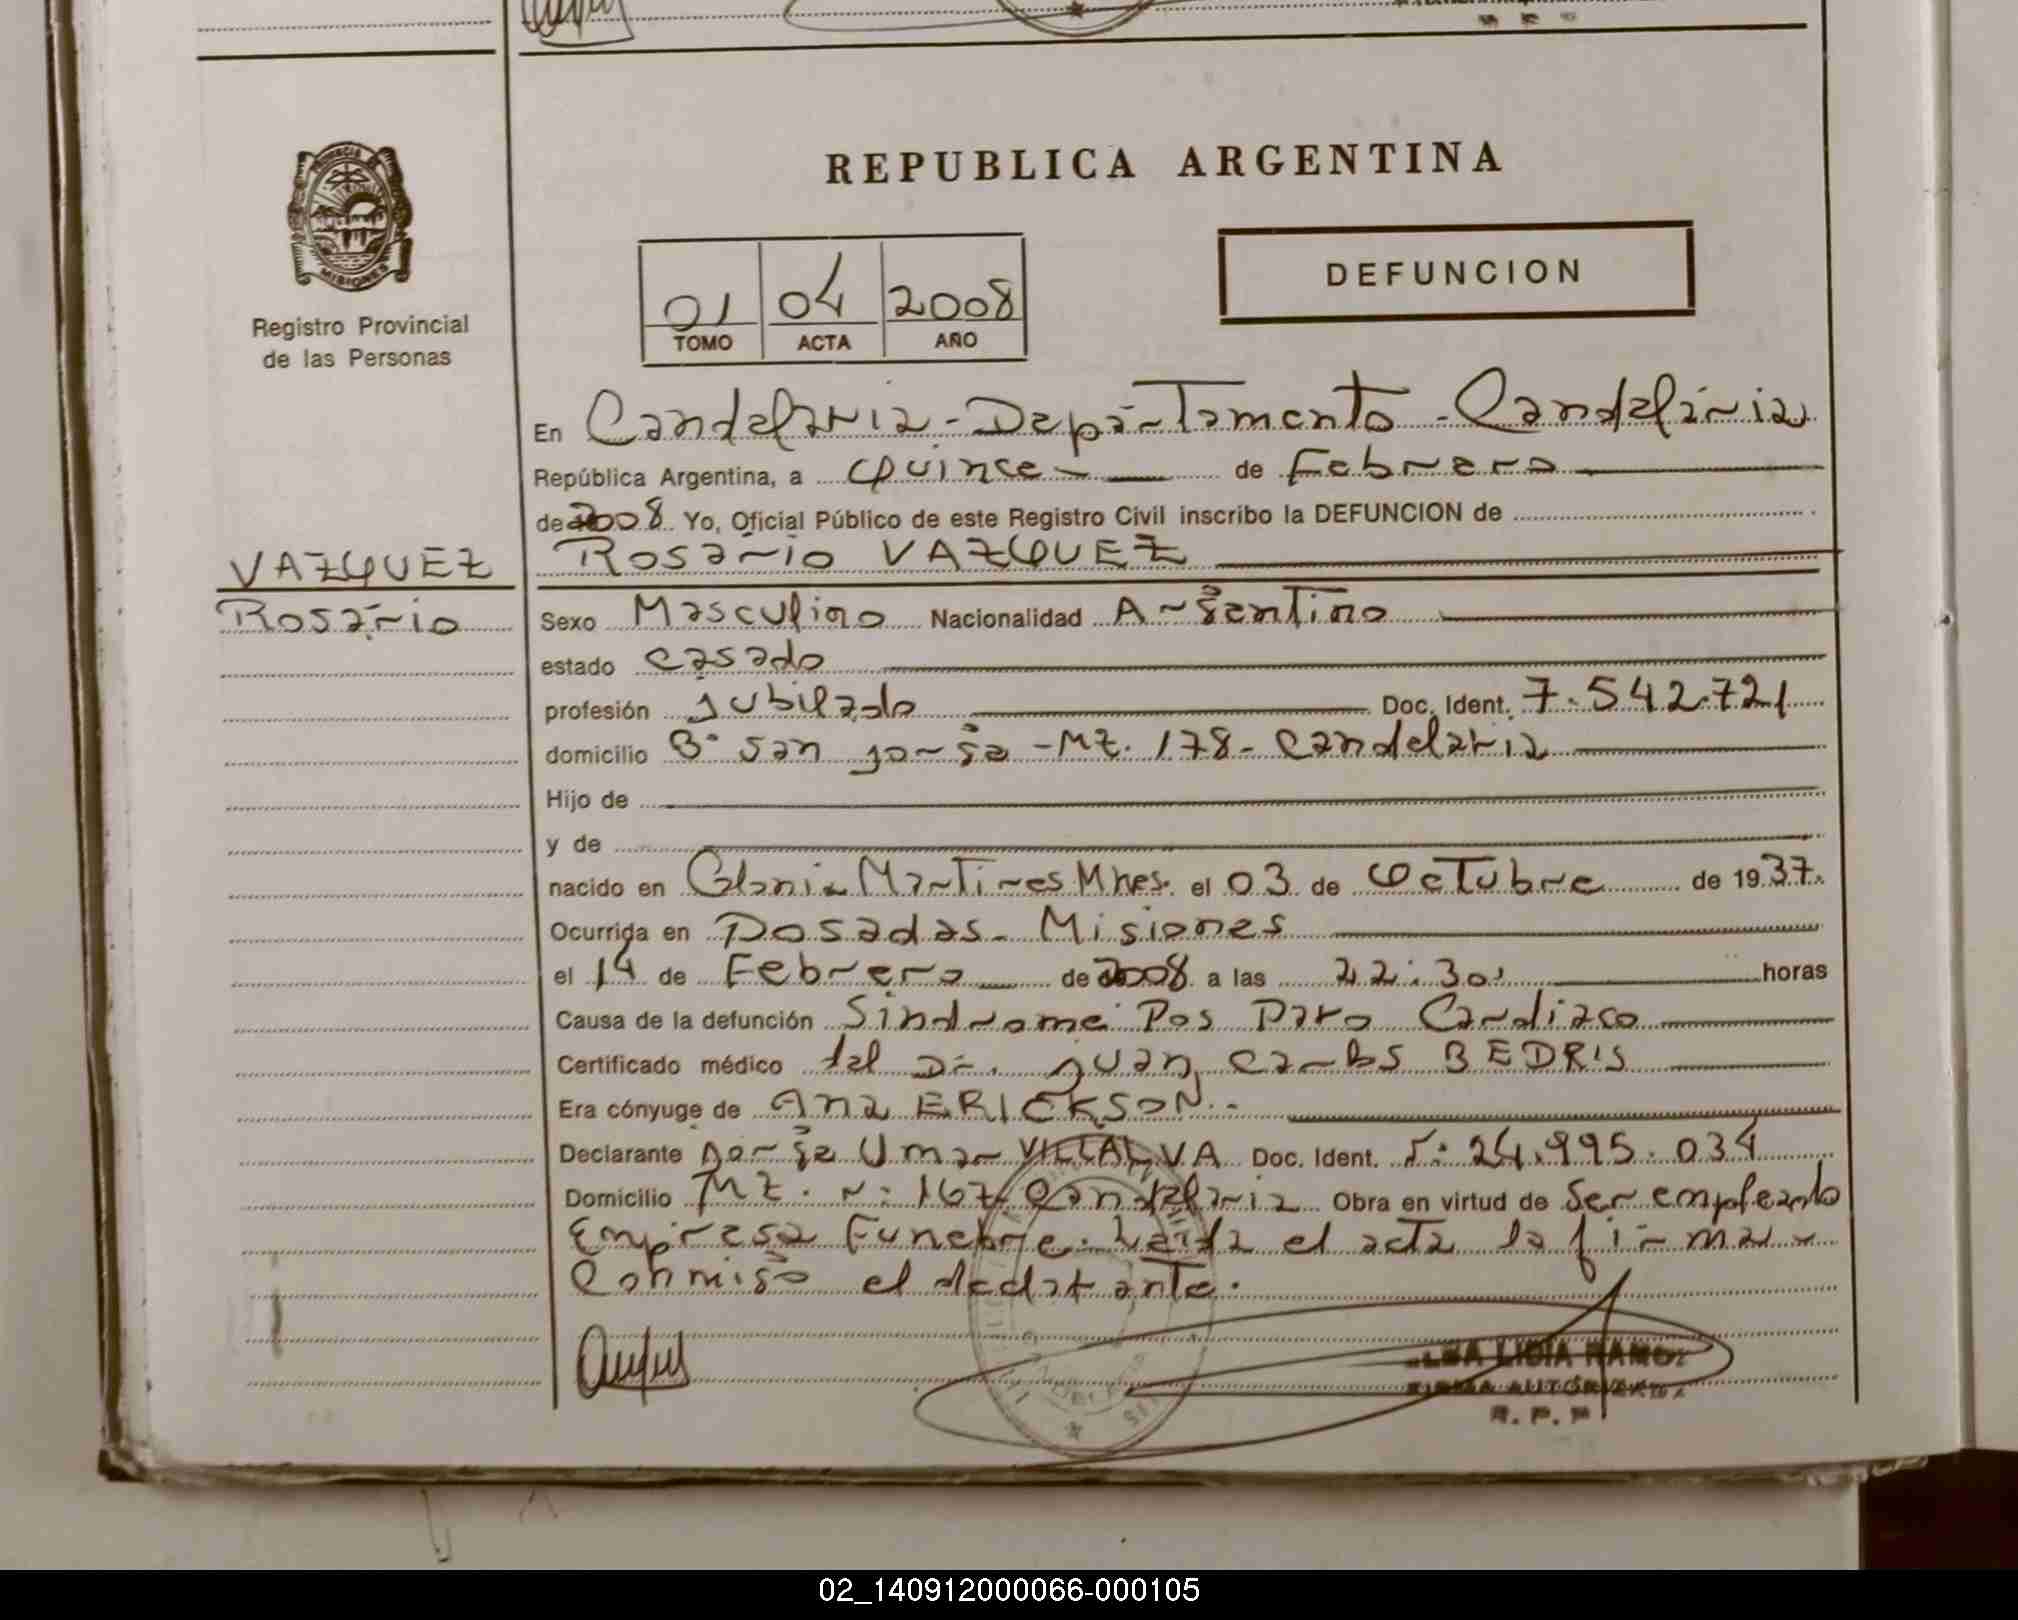 REPUBLICA ARGENTINA
PROVINCIA DE
MISIONES
Registro Provincial
de las Personas
01 04 2008
TOMO ACTA AÑO
DEFUNCION
En Candelaria - Departamento - Candelaria
República Argentina, a quince de Febrero
de 2008 Yo, Oficial Público de este Registro Civil inscribo la DEFUNCION de
VAZQUEZ
Rosario
Rosario VAZQUEZ
Sexo Masculino Nacionalidad Argentino
estado casado
profesión jubilado Doc. Ident. 7.542.721
domicilio B° San Jorge - Mz. 178 - Candelaria
Hijo de
y de
nacido en Colonia Martires Mnes. el 03 de Octubre de 1937.
Ocurrida en Posadas - Misiones
el 14 de Febrero de 2008 a las 22:30 horas
Causa de la defunción Sindrome Pos Paro Cardiaco
Certificado médico del Dr. Juan Carlos BEDRIS
Era cónyuge de Ana ERICKSON.-
Declarante Jorge Omar VILLALVA Doc. Ident. N: 24.995.034
Domicilio MZ. N: 167 Candelaria Obra en virtud de Ser empleado
Empresa Funebre. Leida el acta la firma
Conmigo el declarante.
LIDIA
FIRMA AUTORIZADA
R. P. P
02_140912000066-000105